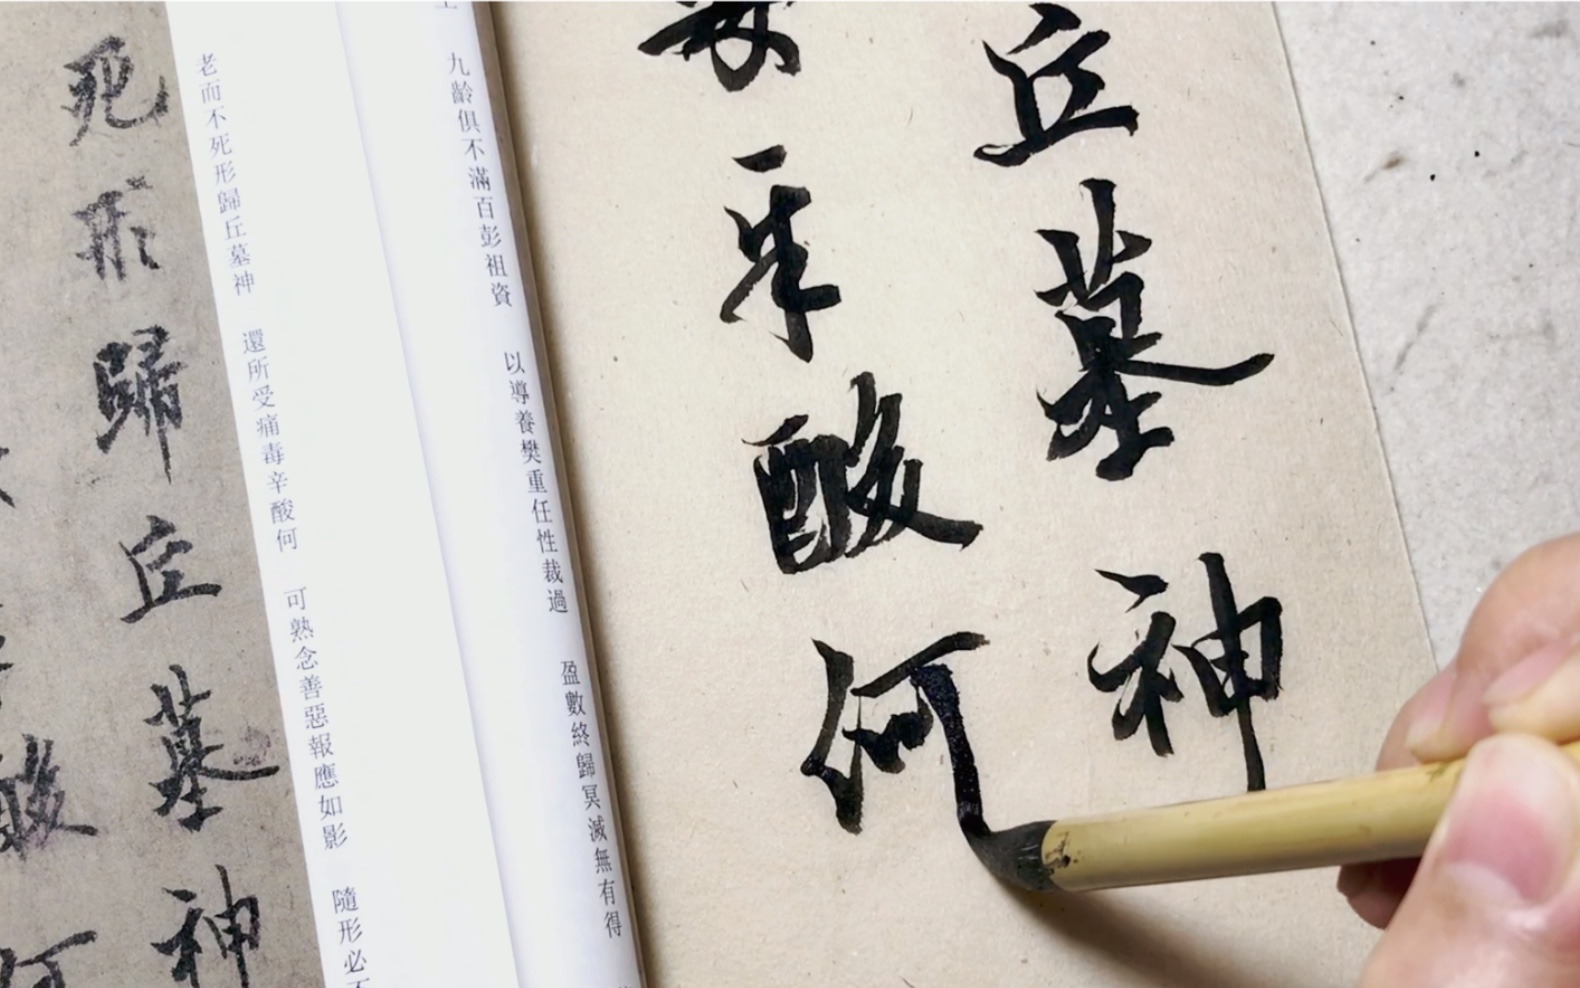 丘墓神
毒辛酸何
九齡俱不滿百彭祖資 以導養樊重任性裁過 盈數終歸冥滅無有得
老而不死形歸丘墓神 還所受痛毒辛酸何 可熟念善惡報應如影 隨形必不
死形歸丘墓神
酸何